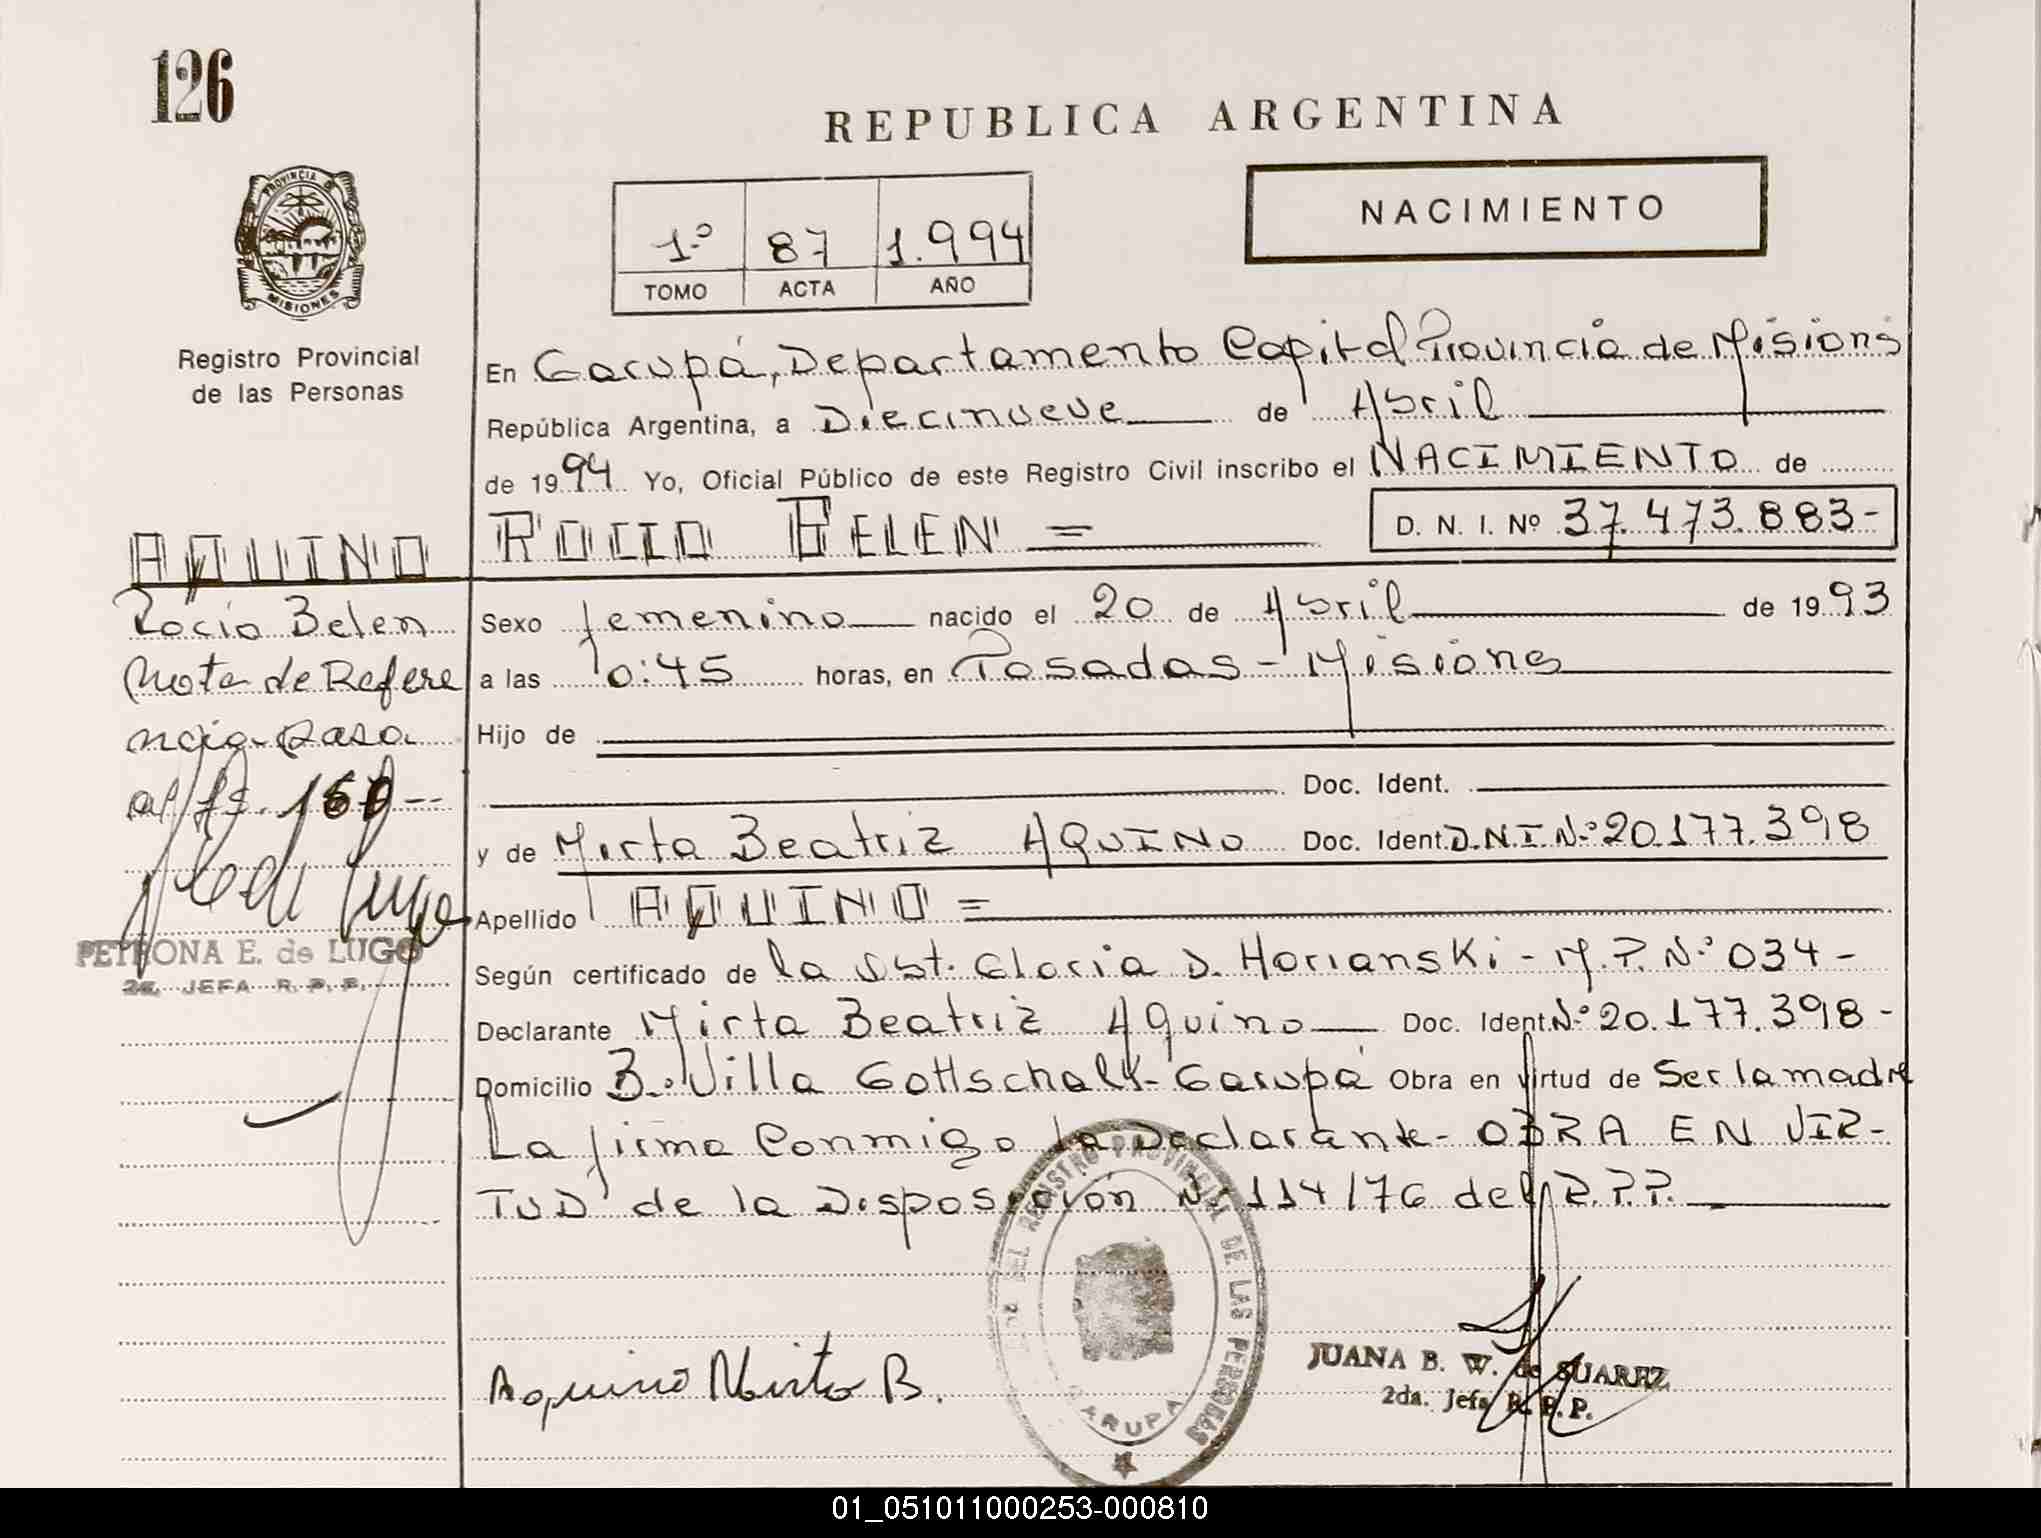 126
REPUBLICA ARGENTINA
NACIMIENTO
1º 87 1.994
TOMO ACTA AÑO
PROVINCIA DE
MISIONES
Registro Provincial
de las Personas
En Garupá, Departamento Capital Provincia de Misiones
República Argentina, a Diecinueve de Abril
de 1994 Yo, Oficial Público de este Registro Civil inscribo el NACIMIENTO de
ROCIO BELEN = D. N. I. Nº 37.473.883-
AQUINO
Rocío Belen
Nota de Refere
ncia pasa
al fs.
PETRONA E. de LUGO
2da. JEFA R. P. P.
Sexo femenino nacido el 20 de Abril de 1993
a las 0:45 horas, en Posadas - Misiones
Hijo de
Doc. Ident.
y de Mirta Beatriz AQUINO Doc. Ident. D.N.I.Nº 20.177.398
Apellido AQUINO =
Según certificado de la Obst. Gloria D. Horianski - M.P.Nº 034 -
Declarante Mirta Beatriz Aquino Doc. Ident. Nº 20.177.398 -
Domicilio B. Villa Gottschalk - Garupá Obra en virtud de Ser la madre
La firma Conmigo la Declarante - OBRA EN VIR-
TUD de la Disposición Nº 114/76 del R.P.P.
DEL REGISTRO PROVINCIAL DE LAS PERSONAS
GARUPA
Aquino Mirta B.
JUANA B. W. de SUAREZ
2da. Jefa R. P. P.
01_051011000253-000810